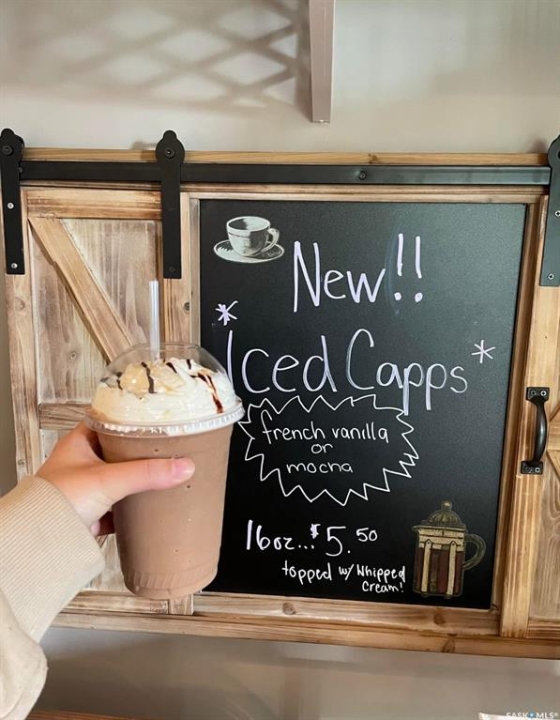 New!!
*Iced Capps*
french vanilla
or
mocha
16oz...$5.50
topped w/ Whipped
Cream!
SASK MLS®